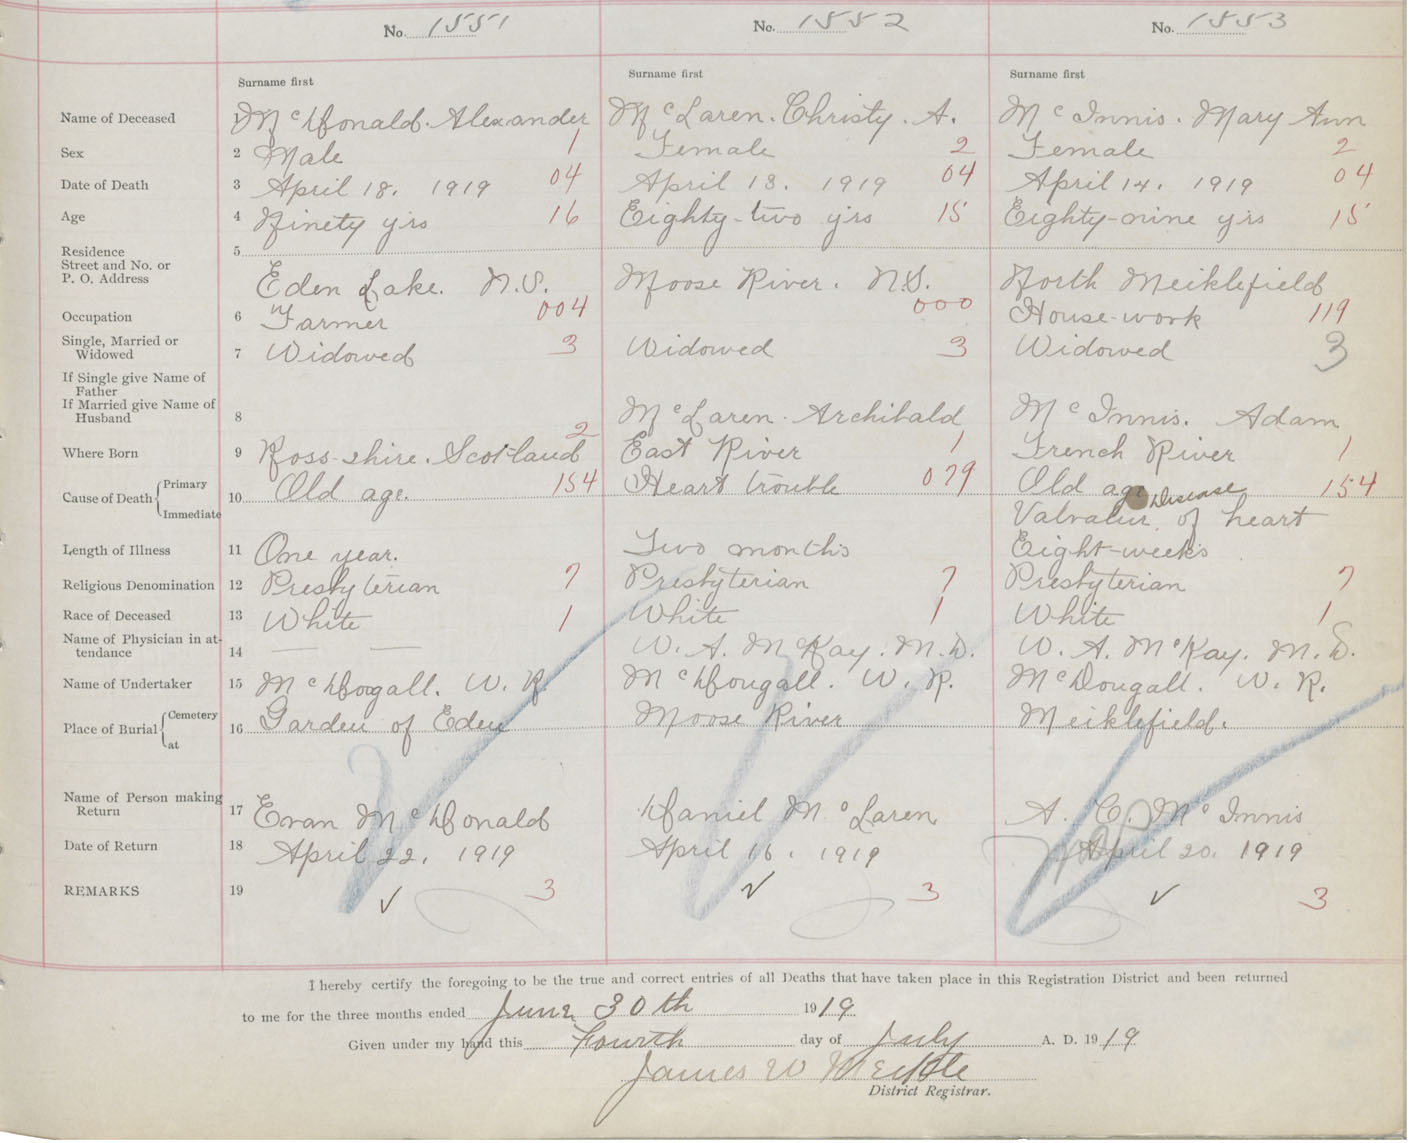 No. 1551 No. 1552 No. 1553
Surname first Surname first Surname first
Name of Deceased 1 McDonald. Alexander McLaren. Christy. A. McInnis. Mary Ann
Sex 2 Male 1 Female 2 Female 2
Date of Death 3 April 18. 1919 04 April 13. 1919 04 April 14. 1919 04
Age 4 Ninety yrs 16 Eighty-two yrs 15 Eighty-nine yrs 15
Residence 5
Street and No. or
P. O. Address Eden Lake. N.S. Moose River. N.S. North Meiklefield
Occupation 6 Farmer 004 000 House-work 119
Single, Married or
Widowed 7 Widowed 3 Widowed 3 Widowed 3
If Single give Name of
Father
If Married give Name of
Husband 8 McLaren. Archibald McInnis. Adam
Where Born 9 Ross-shire. Scotland 2 East River 1 French River 1
Cause of Death Primary 10 Old age. 154 Heart trouble 079 Old age Disease 154
Immediate of heart
Length of Illness 11 One year. Two months Eight-weeks
Religious Denomination 12 Presbyterian 7 Presbyterian 7 Presbyterian 7
Race of Deceased 13 White 1 White 1 White 1
Name of Physician in at-
tendance 14 — — W. A. McKay. M.D. W. A. McKay. M.D.
Name of Undertaker 15 McDogall. W. R. McDougall. W. R. McDougall. W. R.
Place of Burial Cemetery 16 Garden of Eden Moose River Meiklefield.
at
Name of Person making
Return 17 Evan McDonald Daniel McLaren A. C. McInnis
Date of Return 18 April 22, 1919 April 16. 1919 April 20. 1919
REMARKS 19 ✓ 3 ✓ 3 ✓ 3
I hereby certify the foregoing to be the true and correct entries of all Deaths that have taken place in this Registration District and been returned
to me for the three months ended June 30th 1919
Given under my hand this Fourth day of July A. D. 1919
James W Meikle
District Registrar.